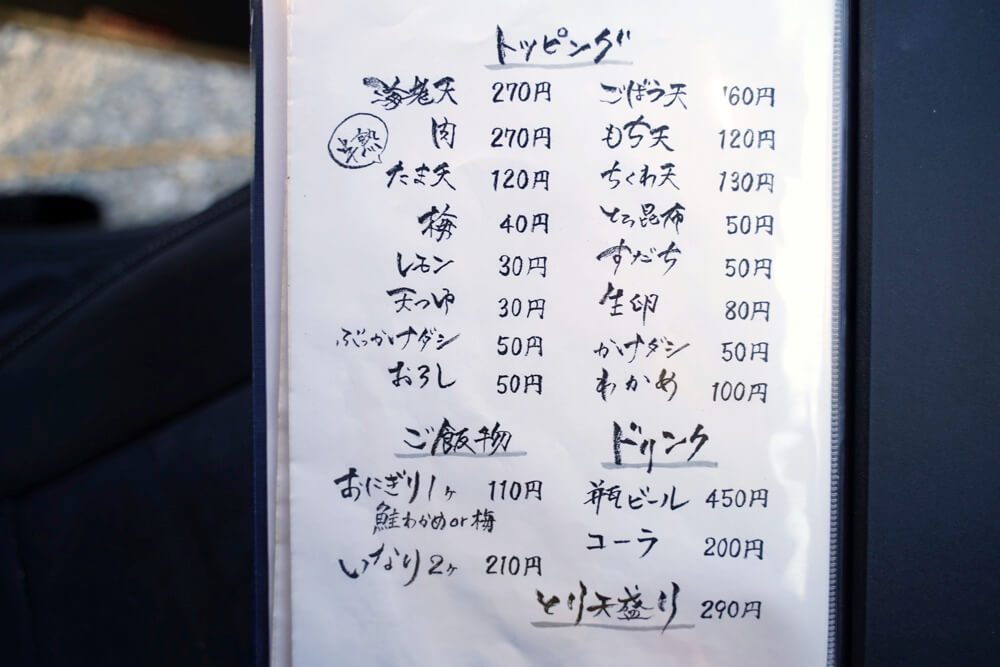 トッピング
海老天 270円 ごぼう天 160円
肉 270円 もち天 120円
半熟
たま天 120円 ちくわ天 130円
梅 40円 とろ昆布 50円
レモン 30円 すだち 50円
天つゆ 30円 生卵 80円
ぶっかけダシ 50円 かけダシ 50円
おろし 50円 わかめ 100円
ご飯物 ドリンク
おにぎり1ヶ 110円 瓶ビール 450円
鮭わかめor梅
コーラ 200円
いなり2ヶ 210円
とり天盛り 290円